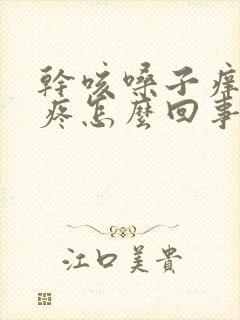 幹咳嗓子痒
疼怎麼回事
江口美貴